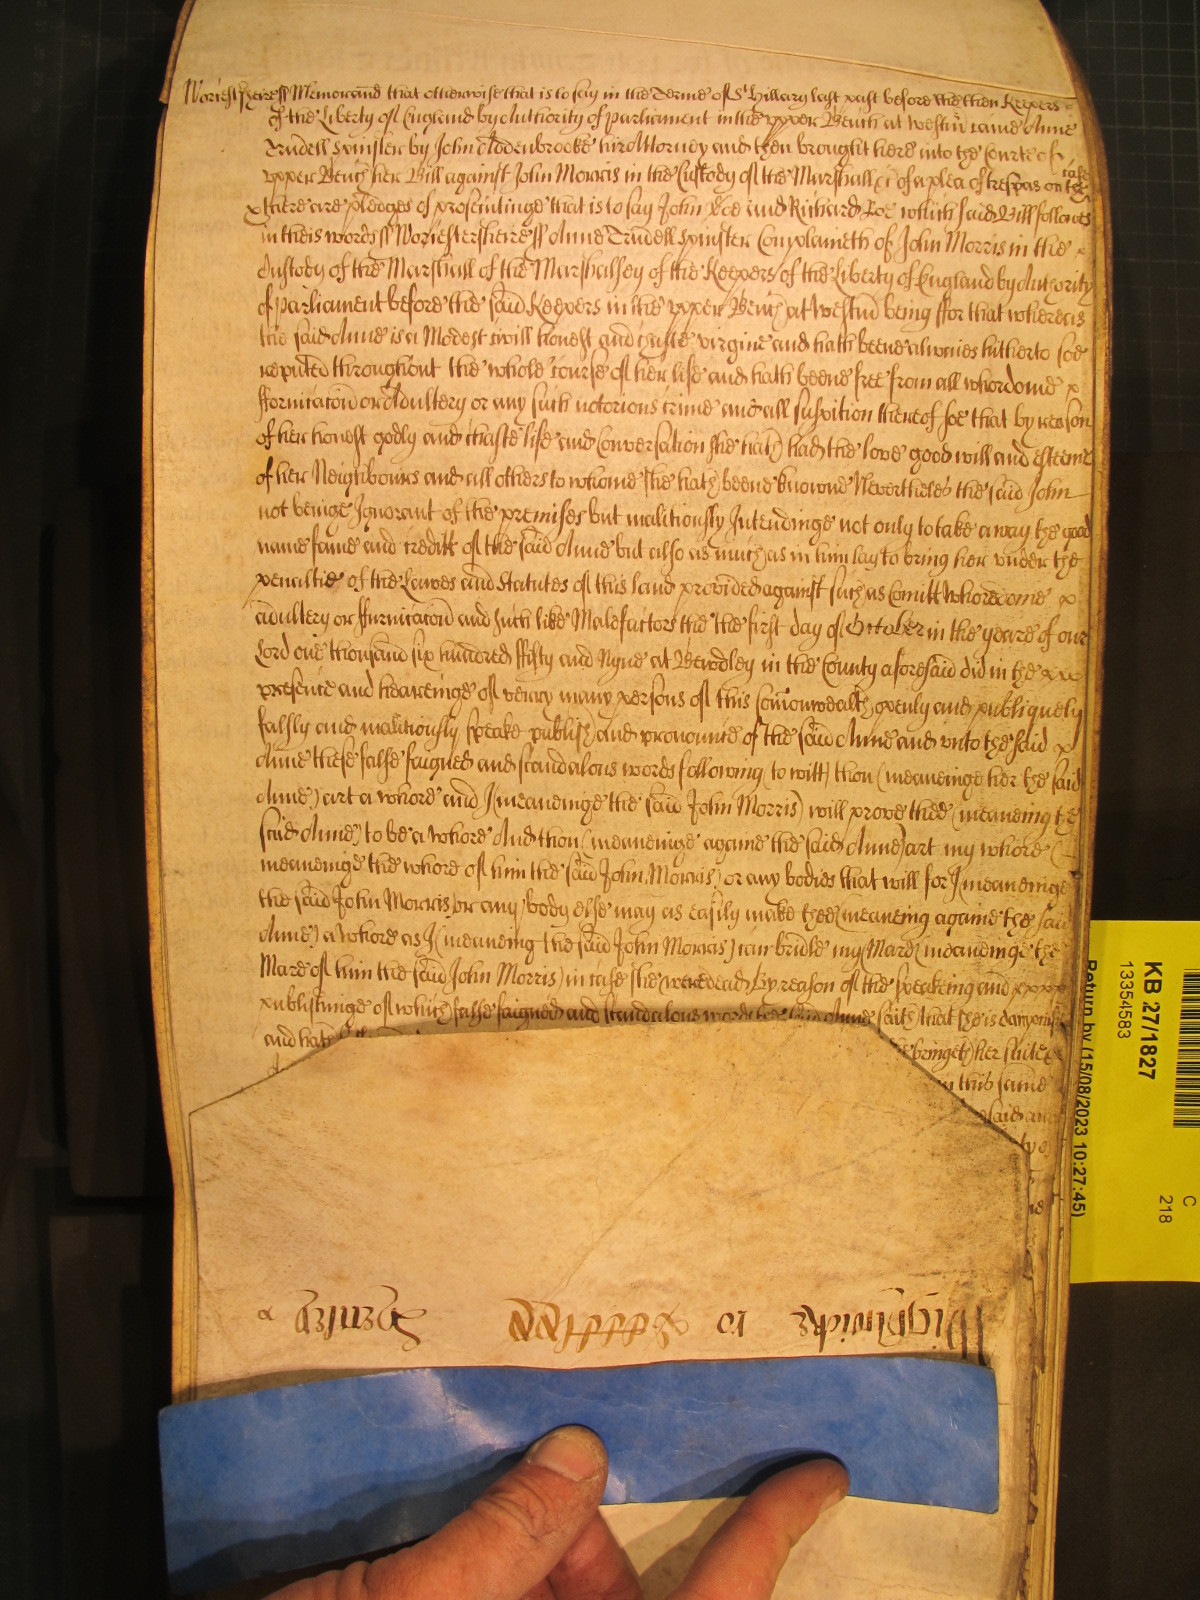 Worcestersheire ss Memorand that otherwise that is to say in the Terme of St Hillary last past before the then Keepers
of the Liberty of England by Authority of Parliament in the upper Bench at Westm came Anne
Trudell Spinster by John Clodenbrooke her Attorney and then brought here into the Courte of
upper Bench her Bill against John Morris in the Custody of the Marshall &c of a plea of trespas on the case
& there are pledges of prosecutinge that is to say John Doe and Richard Roe which said Bill followes
in theis words ss Worcestersheire ss Anne Trudell spinster Complaineth of John Morris in the
Custody of the Marshall of the Marshallsey of the Keepers of the Liberty of England by Authority
of Parliament before the said Keepers in the upper Bench at Westm being ffor that whereas
the said Anne is a Modest civill honest and chaste virgine and hath beene alwaies hitherto soe
reputed throughout the whole course of her life and hath beene free from all whordome
ffornicacon or Adultery or any such notorious crime and all suspition thereof soe that by reason
of her honest godly and chaste life and Conversation she hath had the love good will and esteeme
of her Neighbours and all others to whome she hath beene knowne Neverthelés the said John
not beinge Ignorant of the premises but malitiously Intendinge not only to take away the good
name fame and creditt of the said Anne but also as much as in him lay to bring her under the
penaltie of the Lawes and Statutes of this land provided against such as Comitt Whoredome
adultery or ffurnicacon and such like Malefactors the the first day of October in the yeare of our
Lord one thousand six hundred ffifty and Nyne at Bewdley in the County aforesaid did in the
presence and heareinge of veary many persons of this Comonwealth openly and publiquely
falsly and malitiously speake publish and pronounce of the said Anne and unto the said
Anne these false faigned and scandalous words following (to witt) thou (meaneinge her the said
Anne) art a whore and I (meaneinge the said John Morris) will prove thee (meaneing the
said Anne) to be a whore And thou (meaneinge againe the said Anne) art my whore (
meaneinge the whore of him the said John Morris) or any bodies that will for I (meaneinge
the said John Morris) or any body else may as easily make thee (meaneing againe the said
Anne) a whore as I (meaneing the said John Morris) can bridle my Mare (meaneinge the
Mare of him the said John Morris) in case she were dead By reason of the speakeing and
publishinge of which false faigned and scandalous words the said Anne saith that she is dampnif
and hath
bringeth her suite
in this same
said
Return by (15/08/2023 10:27:45)
13354583
KB 27/1827
C
218